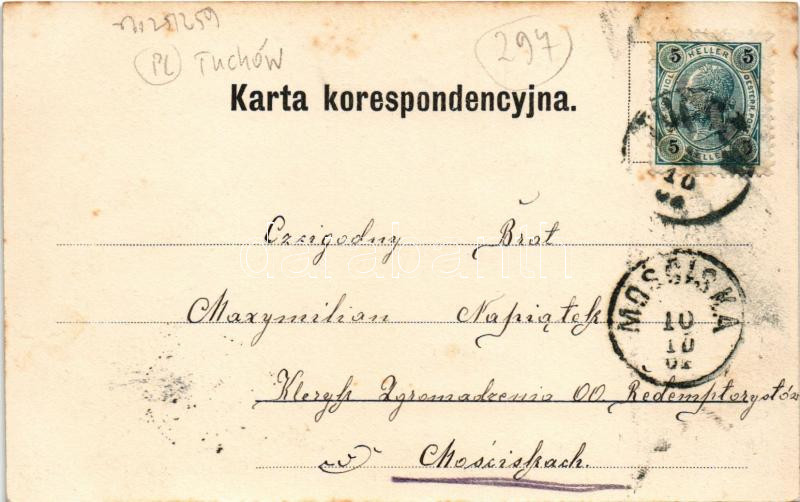 (PL) Tuchów
297
Karta korespondencyjna.
5 HELLER 5
5 HELLER 5
10
Czcigodny Brat
Maxymilian Napiątek
MOŚCISKA
10
10
02
Kleryk Zgromadzenia OO. Redemptorystów
w Mościskach.
darabanth